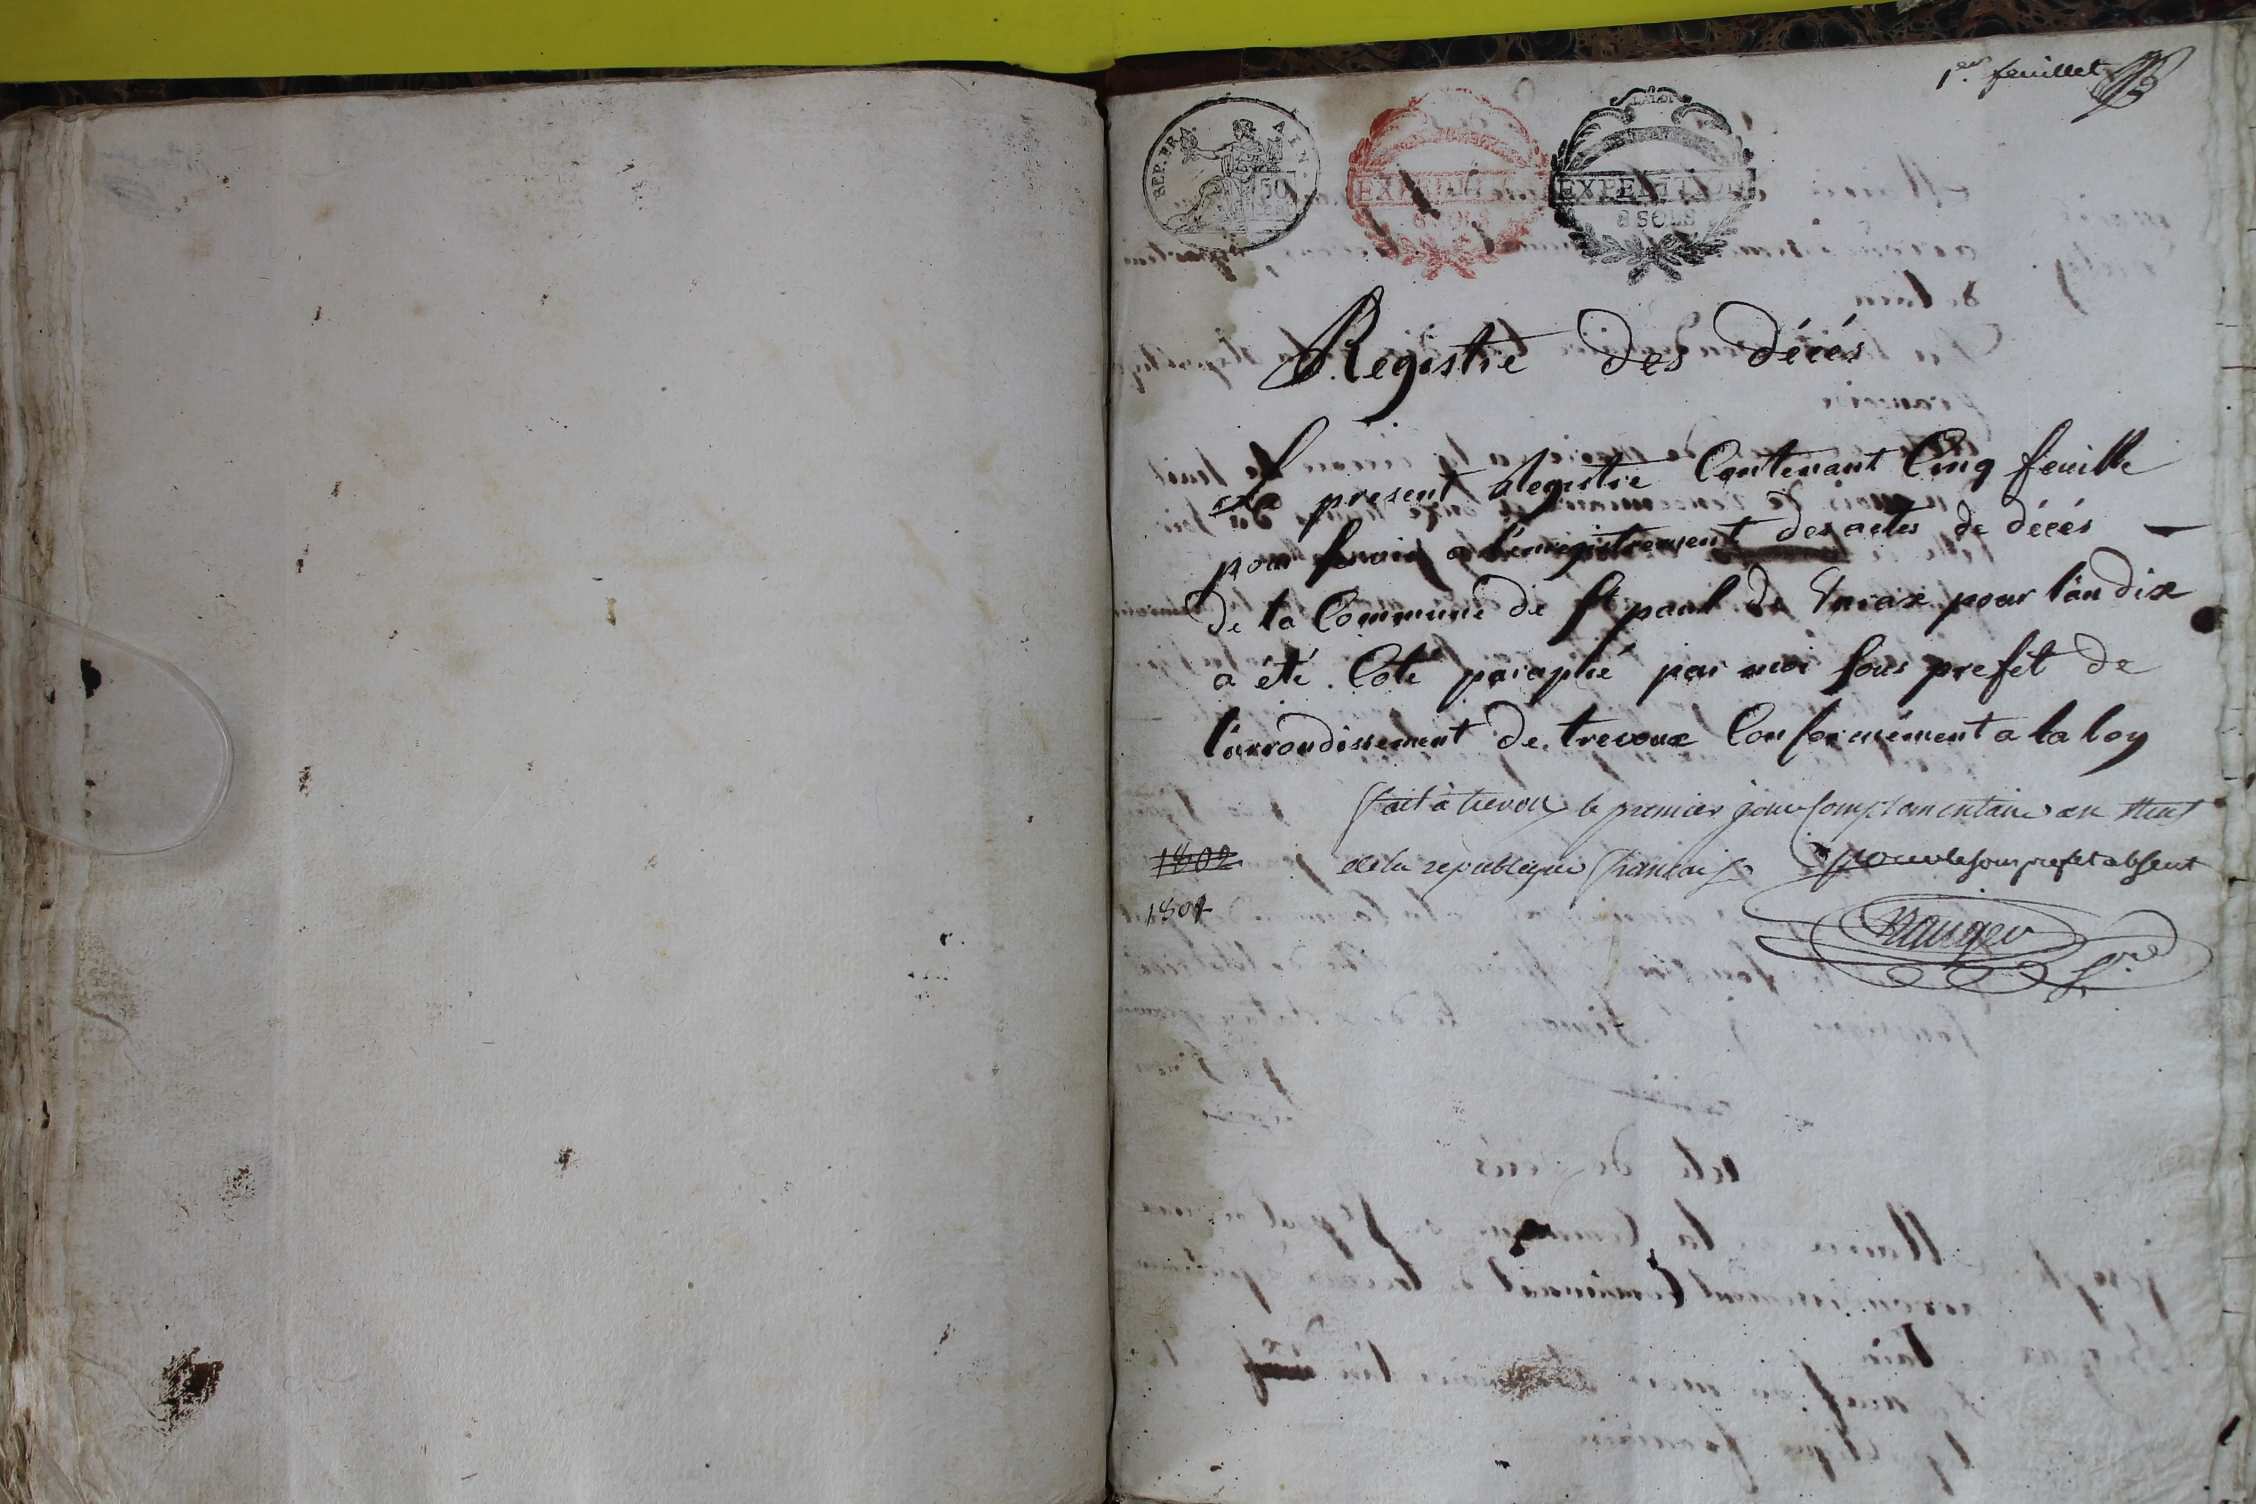 1er feuillet
REP. FRA. AIN.
50
EXPEDITION
EXPEDITION
6 SOLS
Registre des décés
Le present Registre Contenant Cinq feuille
pour servir a l'enregistrement des actes de décés —
de la Commune de St paul de Varax pour l'an dix
a été Coté paraphé par moi sous prefet de
l'arrondissement de trevoux Conformément a la loy
fait à trevoux le premier jour complémentaire an neuf
de la republique francaise pour le sous prefet absent
1802
1801
Sre